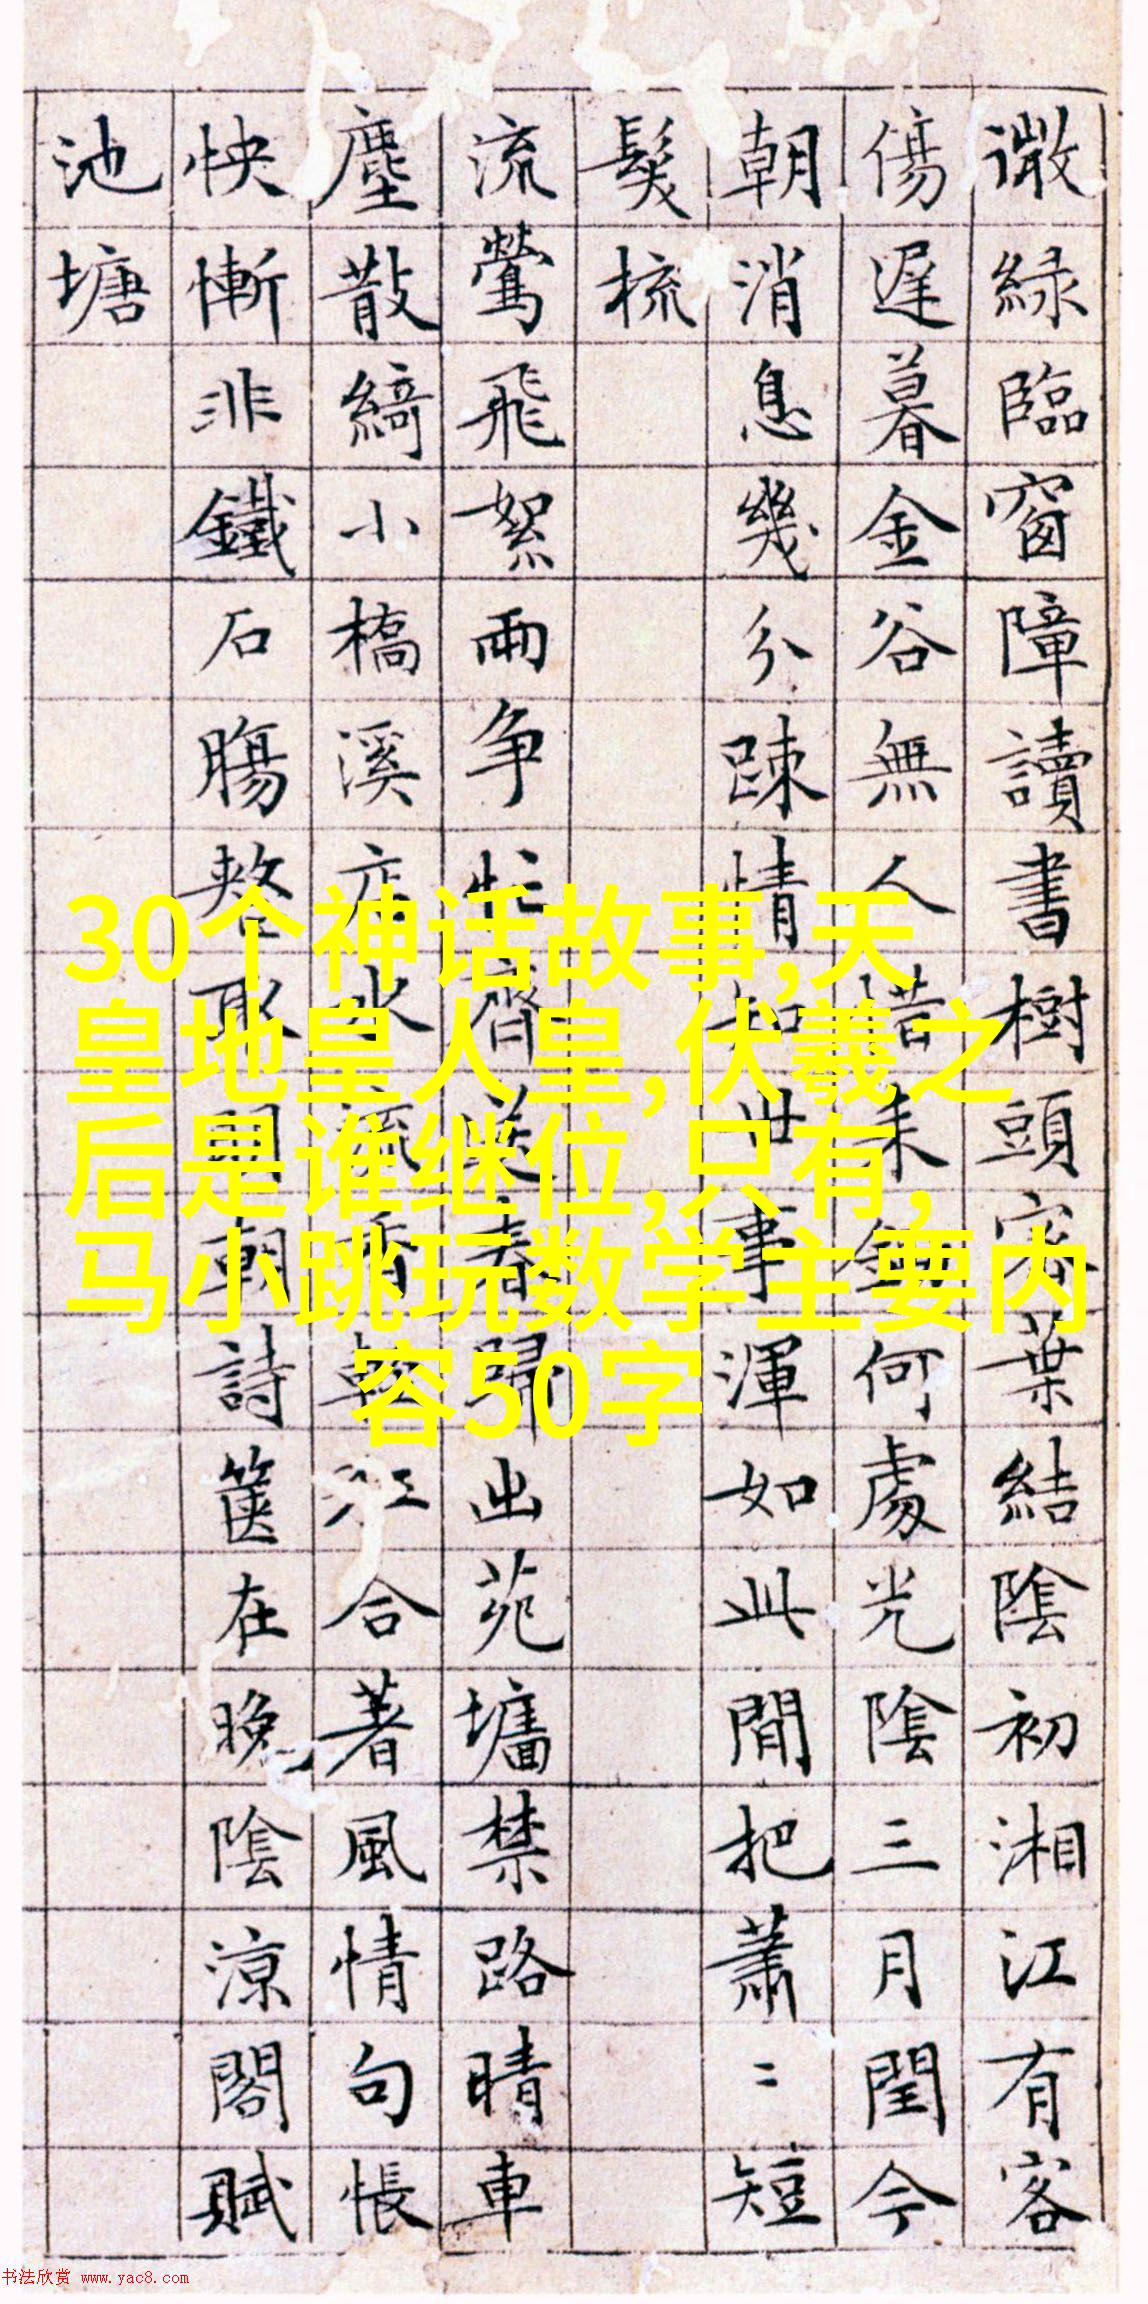 微綠臨窗障讀書樹頭密葉結陰初湘江有客
傷遲暮金谷無人借耒鉏何處光陰三月閏今
朝消息幾分疎情知世事渾如此間把蕭〻短
髮梳
流鶯飛絮兩爭忙齊送春歸出苑墻禁路晴車
塵散綺小橋溪店水流香江合著風情句悵
怏慚非鐵石腸整取朝詩篋在晚陰涼閣賦
池塘
30个神话故事,天
皇地皇人皇,伏羲之
后是谁继位,只有,
马小跳玩数学主要内
容50字
书法欣赏 www.yac8.com